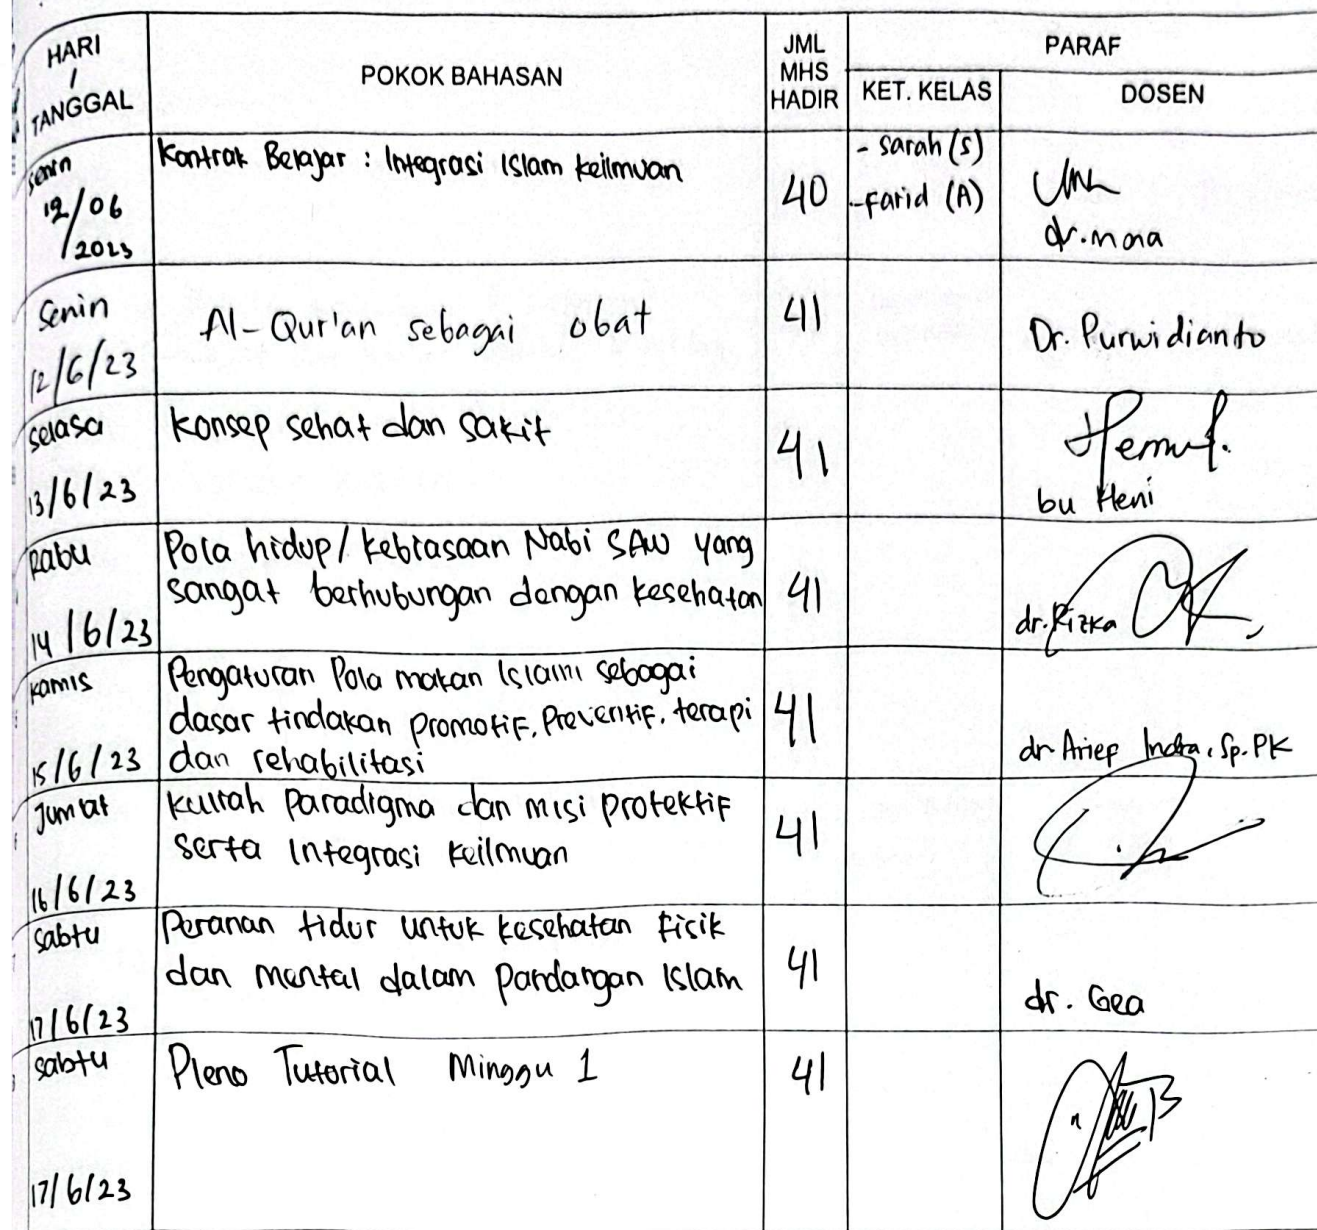 HARI
/
TANGGAL
POKOK BAHASAN
JML
MHS
HADIR
PARAF
KET. KELAS
DOSEN
Senin
12/06
/2023
Kontrak Belajar : Integrasi Islam keilmuan
40
- Sarah (S)
- Farid (A)
dr. mora
Senin
12/6/23
Al-Qur'an sebagai obat
41
Dr. Purwidianto
Selasa
13/6/23
Konsep sehat dan sakit
41
bu Heni
Rabu
14/6/23
Pola hidup/ kebiasaan Nabi SAW yang
sangat berhubungan dengan kesehatan
41
dr. Rizka
Kamis
15/6/23
Pengaturan Pola makan Islami sebagai
dasar tindakan promotif, Preventif, terapi
dan rehabilitasi
41
dr Ariep Indra, Sp.PK
Jum'at
16/6/23
Kuliah Paradigma dan misi protektif
serta Integrasi keilmuan
41
Sabtu
17/6/23
Peranan tidur untuk kesehatan fisik
dan mental dalam pandangan Islam
41
dr. Gea
Sabtu
17/6/23
Pleno Tutorial Minggu 1
41